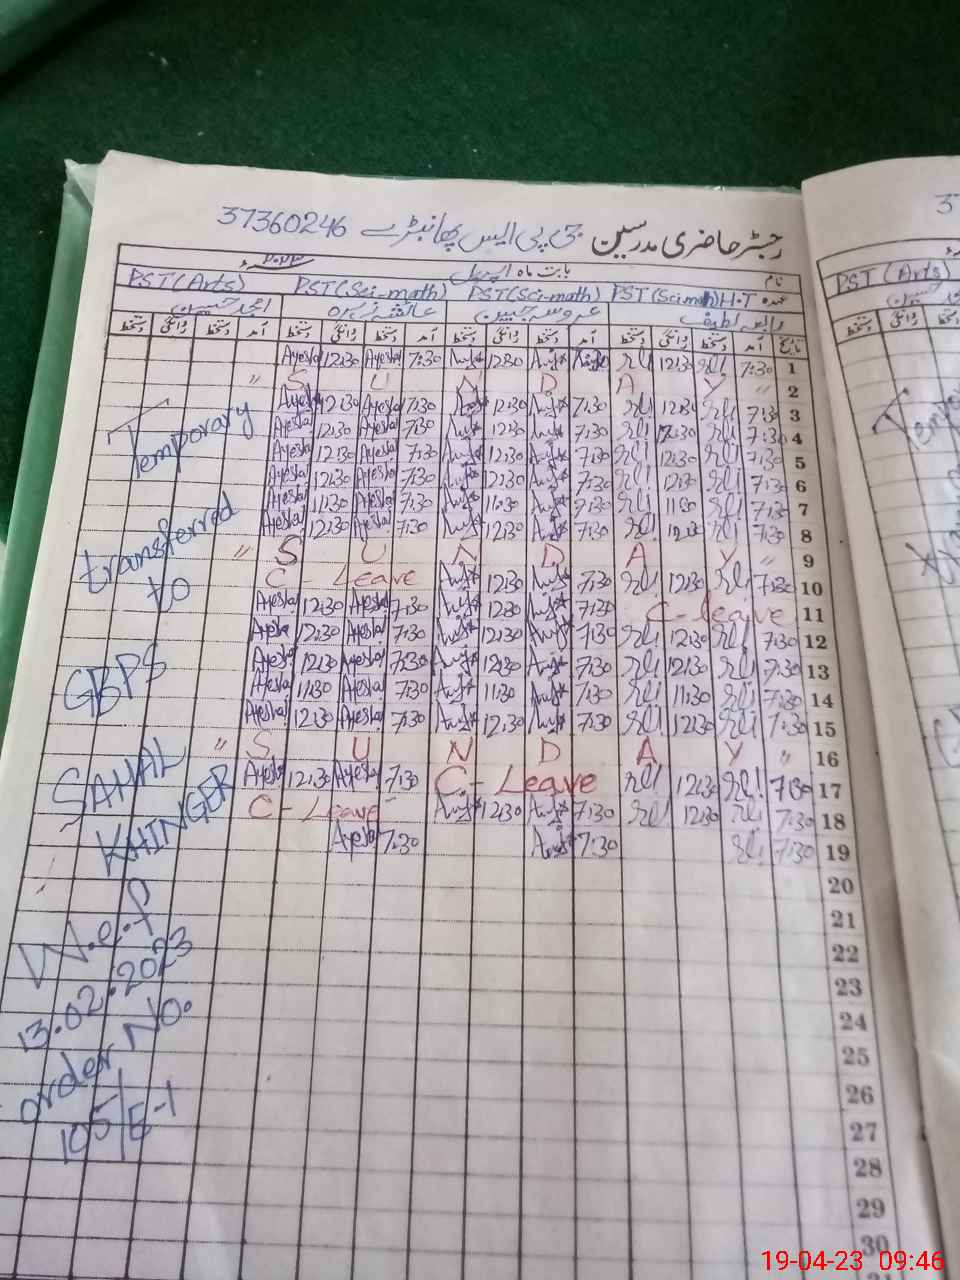 رجسٹر حاضری مدرسین جی پی ایس پھانبڑے 37360246
نام بابت ماہ اپریل ۲۰۲۳ء
عہدہ PST(Sci-math) H.T PST(Sci-math) PST(Sci-math) PST(Arts)
رابعہ لطیف عروسہ جبین عائشہ زہرہ امجد حسین
تاریخ آمد دستخط روانگی دستخط آمد دستخط روانگی دستخط آمد دستخط روانگی دستخط آمد دستخط روانگی دستخط
Ayesha 12:30 Ayesha 7:30 12:30 12:30 7:30 1
" S U N D A Y " 2
Ayesha 12:30 Ayesha 7:30 12:30 7:30 12:30 7:30 3
Ayesha 12:30 Ayesha 7:30 12:30 7:30 12:30 7:30 4
Ayesha 12:30 Ayesha 7:30 12:30 7:30 12:30 7:30 5
Ayesha 12:30 Ayesha 7:30 12:30 7:30 12:30 7:30 6
Ayesha 11:30 Ayesha 7:30 11:30 7:30 11:30 7:30 7
Ayesha 12:30 Ayesha 7:30 12:30 7:30 12:30 7:30 8
" S U N D A Y " 9
C - Leave 12:30 7:30 12:30 7:30 10
Ayesha 12:30 Ayesha 7:30 12:30 7:30 C - leave 11
Ayesha 12:30 Ayesha 7:30 12:30 7:30 12:30 7:30 12
Ayesha 12:30 Ayesha 7:30 12:30 7:30 12:30 7:30 13
Ayesha 11:30 Ayesha 7:30 11:30 7:30 11:30 7:30 14
Ayesha 12:30 Ayesha 7:30 12:30 7:30 12:30 7:30 15
" S U N D A Y " 16
Ayesha 12:30 Ayesha 7:30 C - Leave 12:30 7:30 17
C - Leave 12:30 7:30 12:30 7:30 18
Ayesha 7:30 7:30 7:30 19
20
21
22
23
24
25
26
27
28
29
30
Temporary
transferred
to
GBPS
SAHAL
KHINGER
W.e.f
13.02.2023
order No.
105/E-1
37
PST (Arts)
19-04-23 09:46